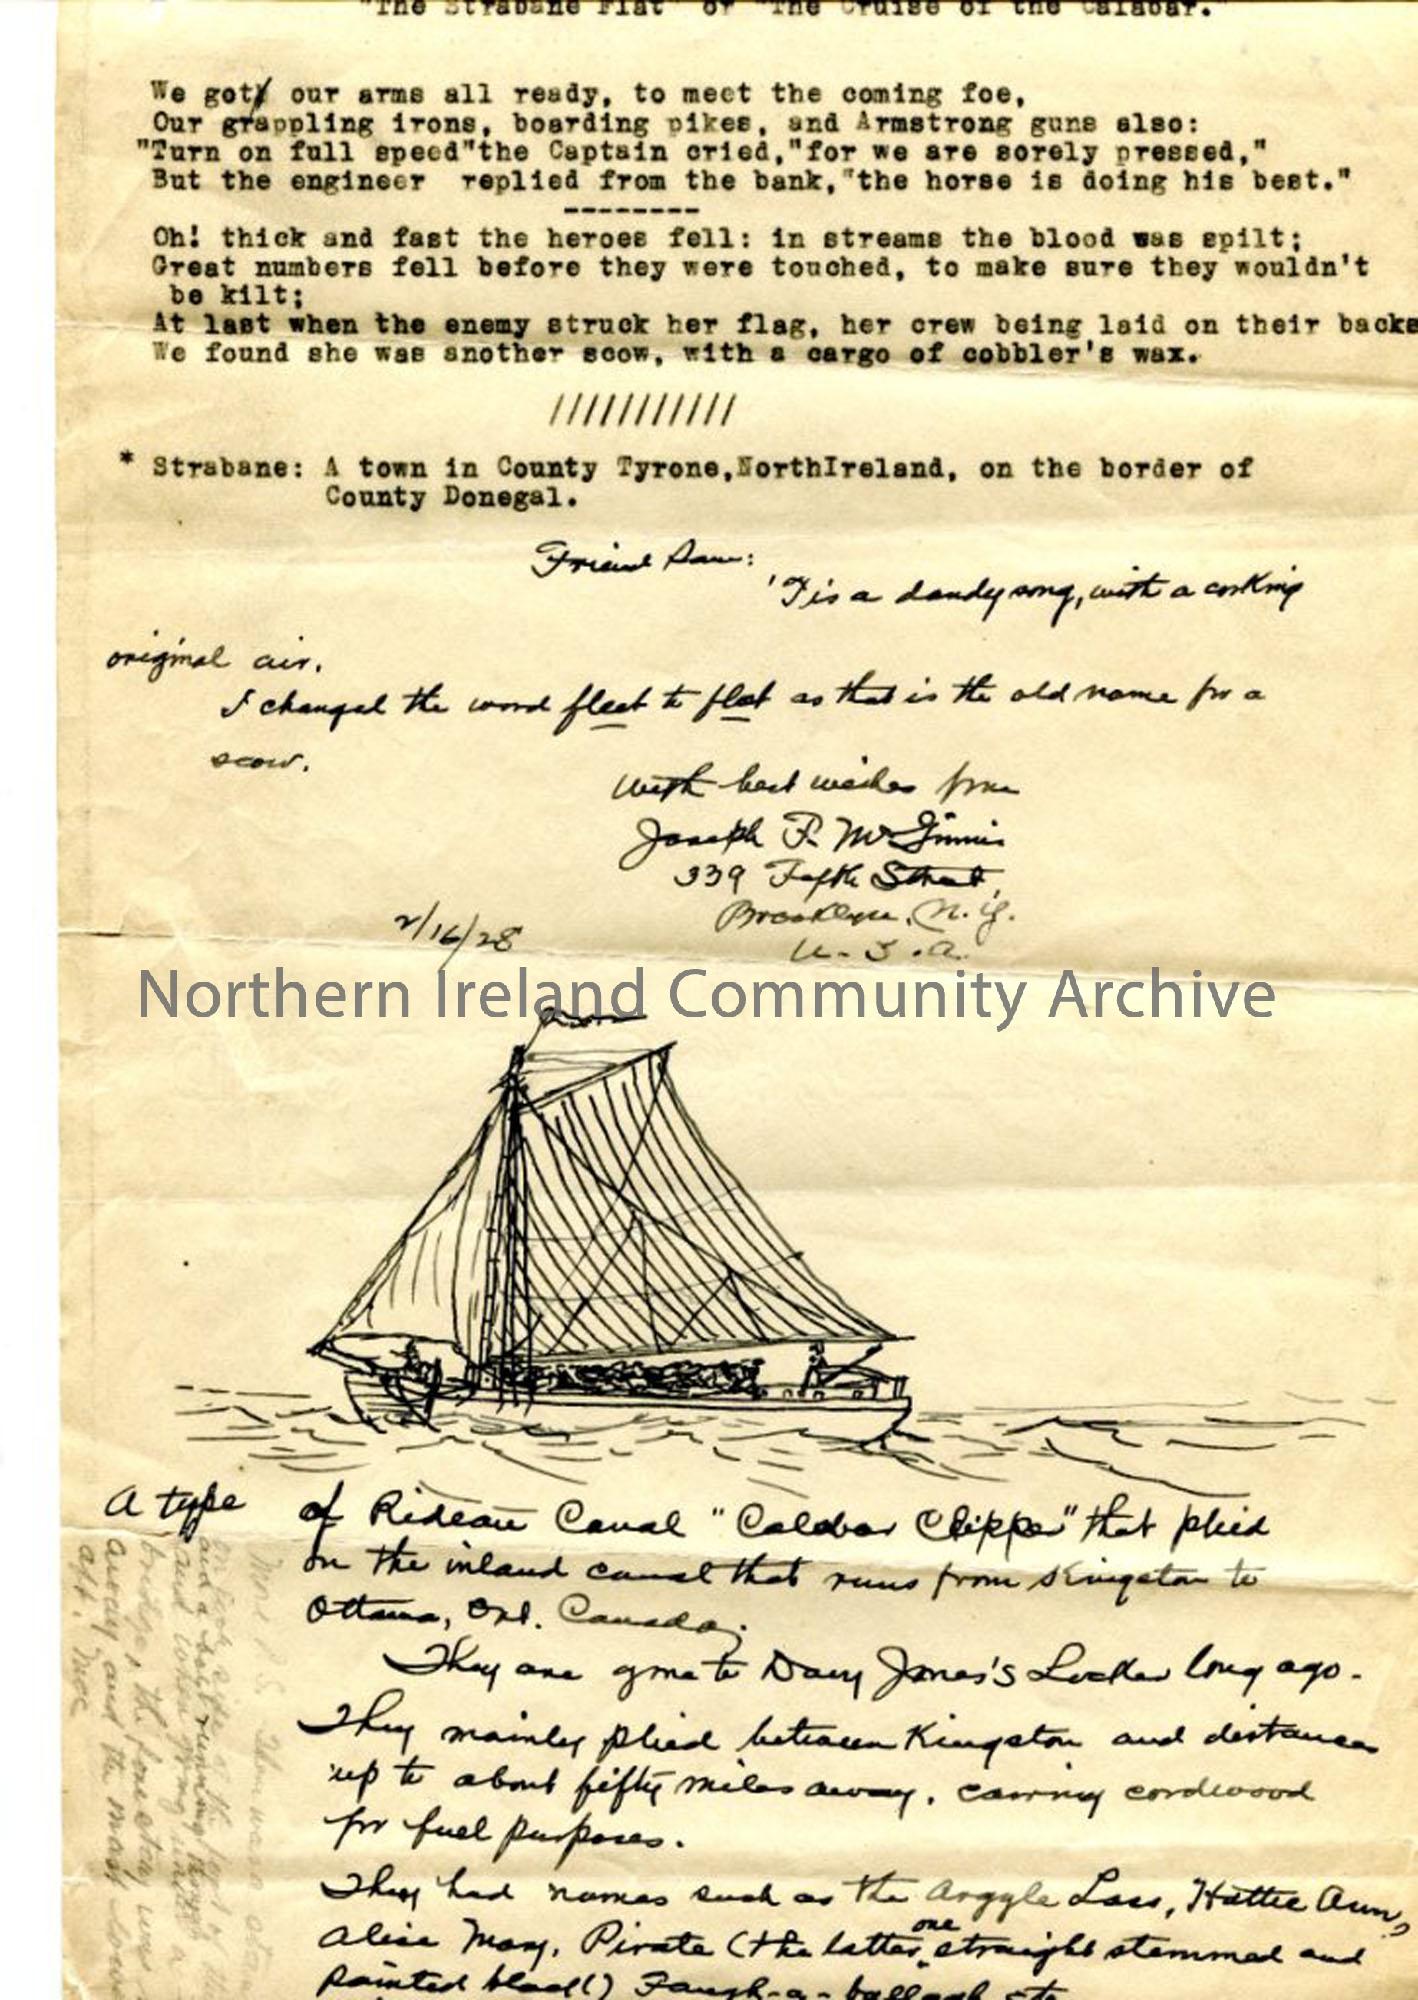 "The Strabane Flat" or "The Cruise of the Calabar."
We got our arms all ready, to meet the coming foe,
Our grappling irons, boarding pikes, and Armstrong guns also:
"Turn on full speed"the Captain cried,"for we are sorely pressed,"
But the engineer replied from the bank,"the horse is doing his best."
--------
Oh! thick and fast the heroes fell: in streams the blood was spilt;
Great numbers fell before they were touched, to make sure they wouldn't
be kilt;
At last when the enemy struck her flag, her crew being laid on their backs
We found she was another scow, with a cargo of cobbler's wax.
///////////
* Strabane: A town in County Tyrone,NorthIreland, on the border of
County Donegal.
Friend Sam:
'Tis a dandy song, with a corking
original air.
I changed the word fleet to flat as that is the old name for a
scow.
With best wishes from
Joseph F. McGinnis
339 Fifth Street,
Brooklyn, N.Y.
U.S.A.
2/16/28
Northern Ireland Community Archive
A type of Rideau Canal "Calabar Clipper" that plied
on the inland canal that runs from Kingston to
Ottawa, Ont. Canada.
They are gone to Davy Jones's Locker long ago.
They mainly plied between Kingston and distances
up to about fifty miles away, carring cordwood
for fuel purposes.
They had names such as the Argyle Lass, Hattie Ann,
Alice May, Pirate (the latter one straight stemmed and
painted black) Faugh-a-ballagh etc
More P.S. There was a
and a running through
and when going under a
bridge, the forestay was
away, and the mast
aft.